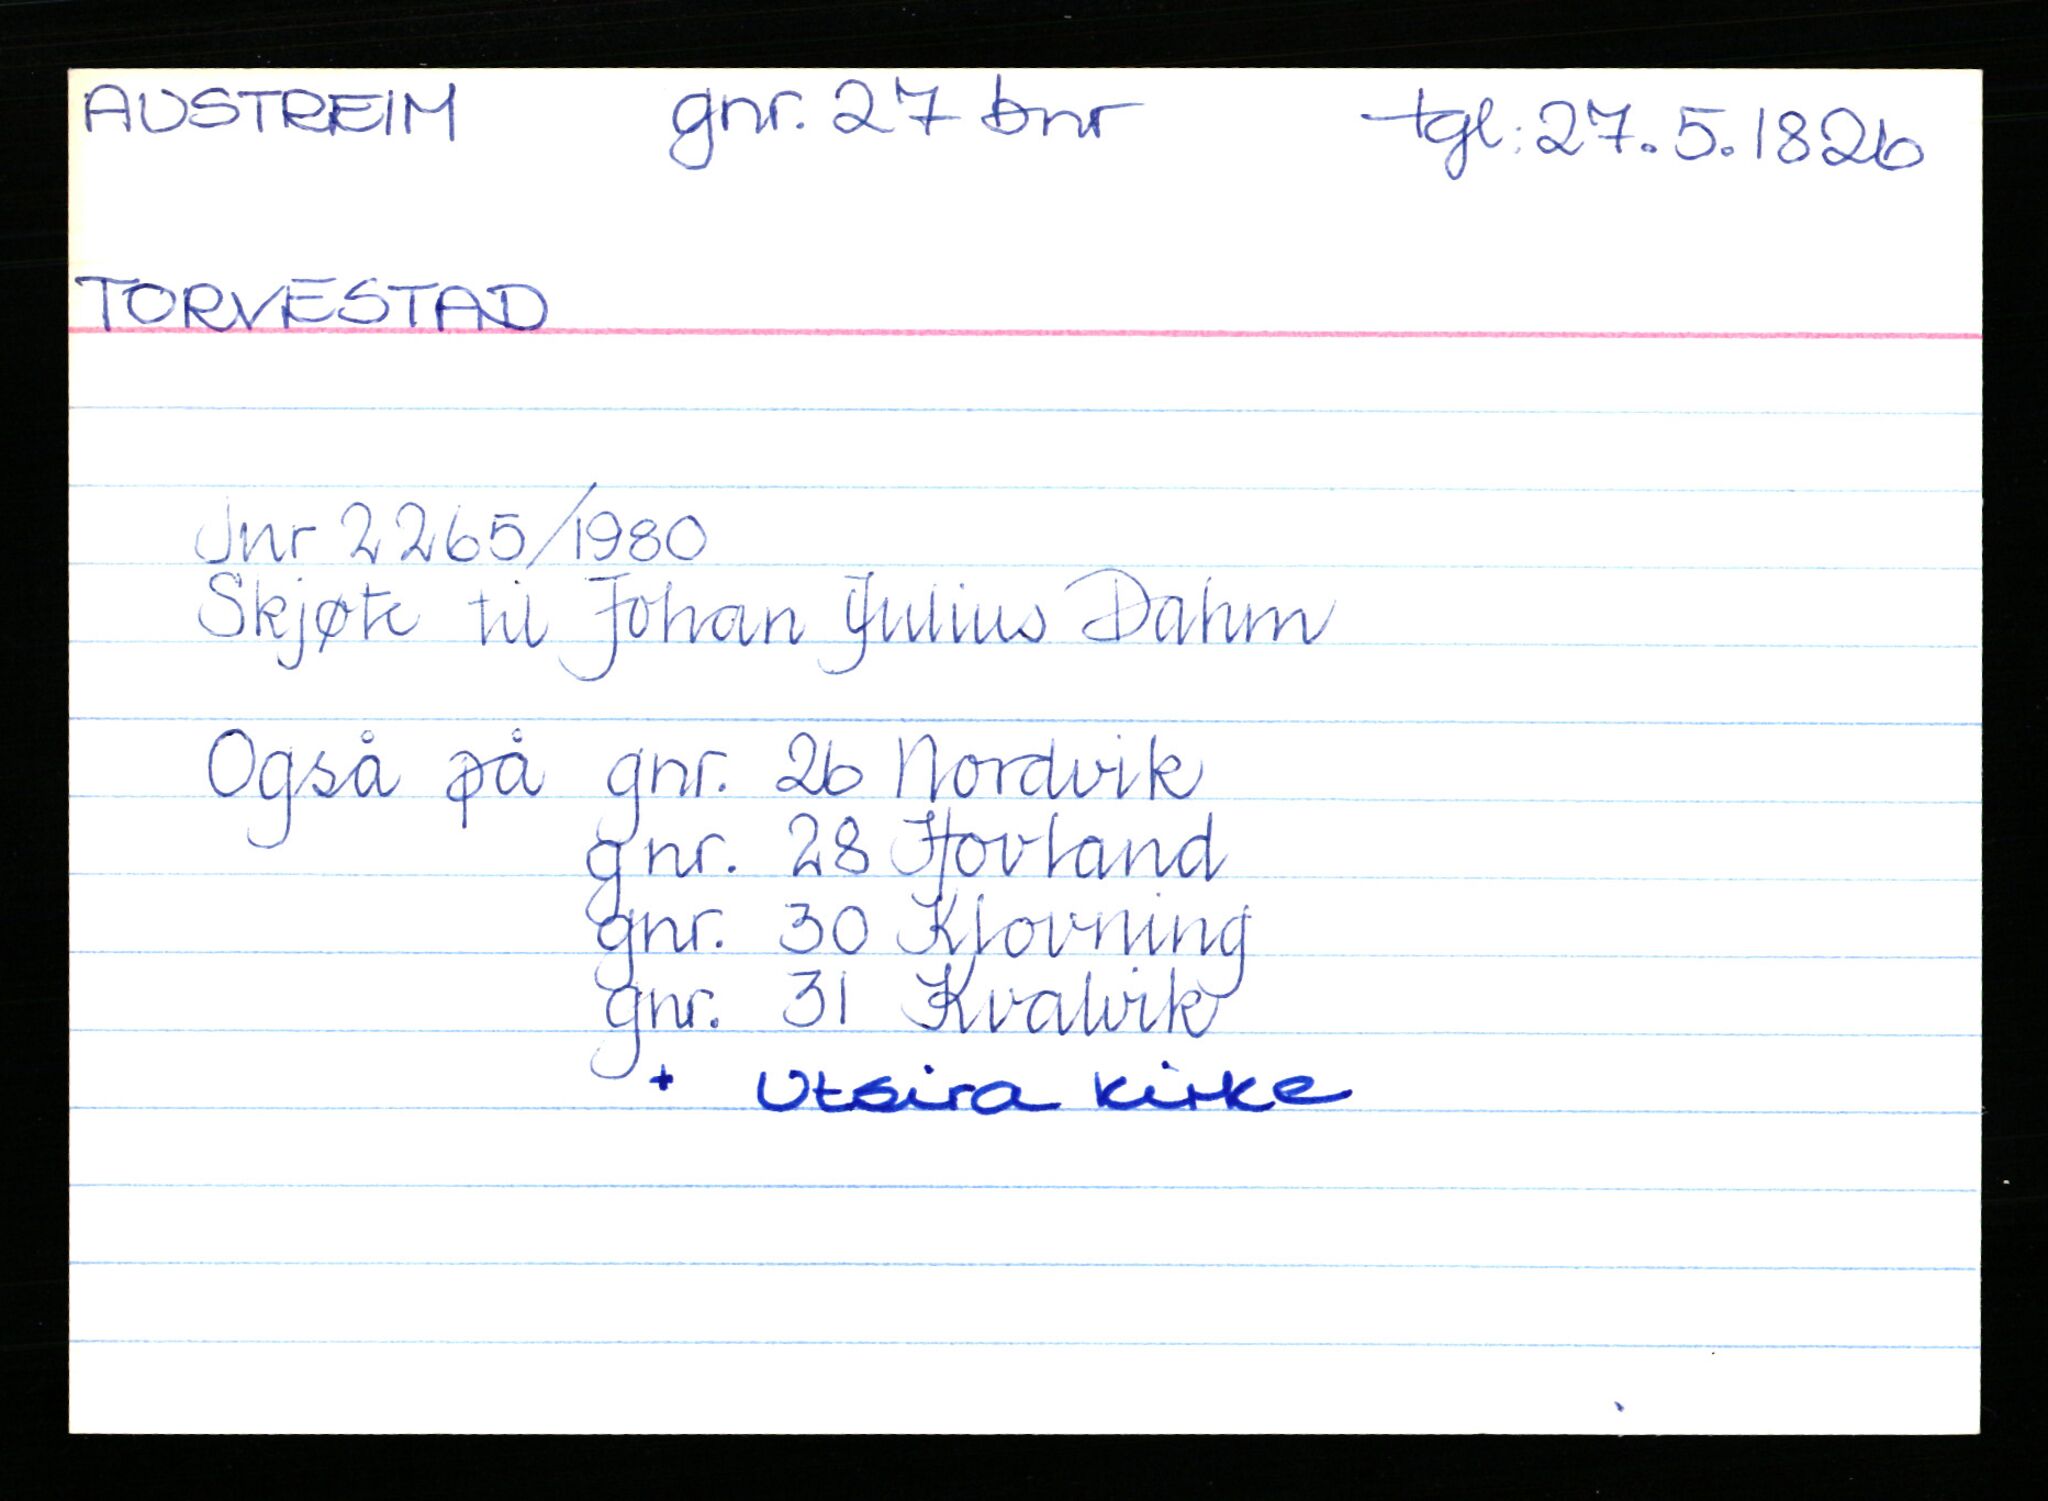 AUSTREIM gnr. 27 bnr tgl: 27.5.1826
TORVESTAD
Jnr 2265/1980
Skjøte til Johan Julius Dahm
Også på gnr. 26 Nordvik
gnr. 28 Hovland
gnr. 30 Klovning
gnr. 31 Kvalvik
+ Utsira kirke